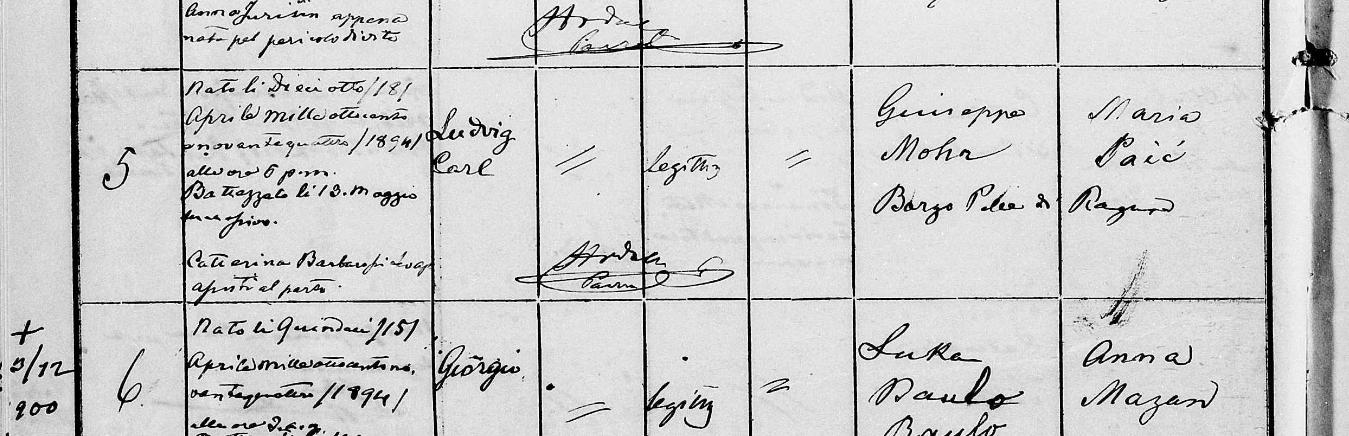 Anna Jurisin appena
nata pel pericolo di vita
5
Nato li Dieciotto /18/
Aprile mille ottocento
novantaquattro /1894/
alle ore 6 p.m.
Battezzato li 13. Maggio
Catterina
apostì al parto.
Ludvig
Carl
"
legittiz
"
Giuseppe
Mohr
Borgo Pile di
Maria
Paić
Ragusa
+
3/12
900
6
Nato li Quindeci /15/
Aprile mille ottocento no.
vantaquattro /1894/
alle ore
Giorgio
"
legittiz
"
Luka
Paulo
Anna
Mazan